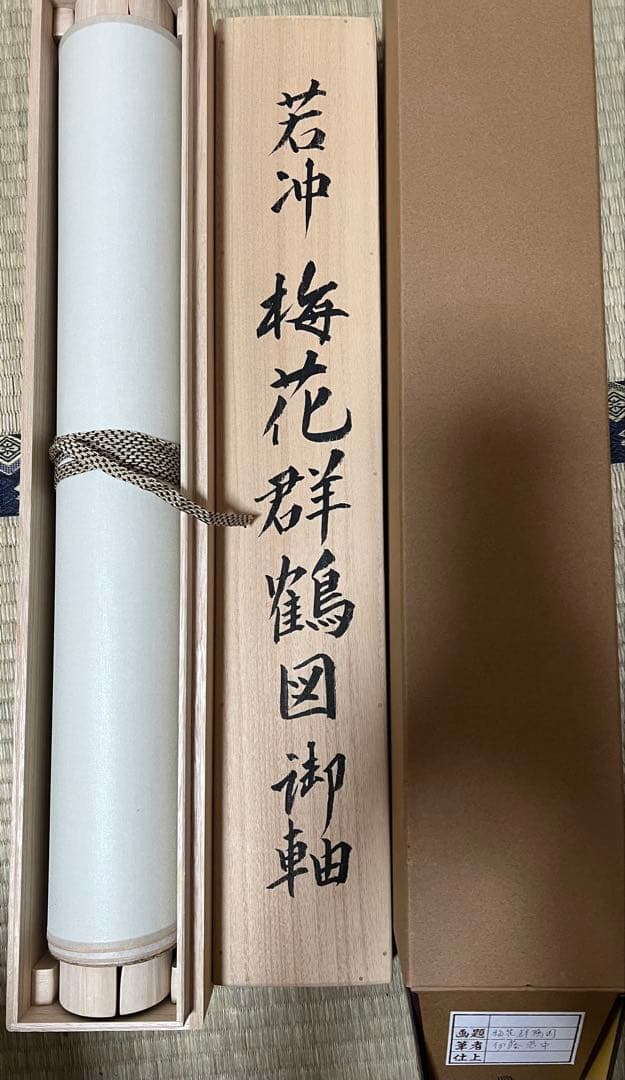 若冲 梅花群鶴図 御軸
画題 梅花群鶴図
筆者 伊藤若冲
仕上